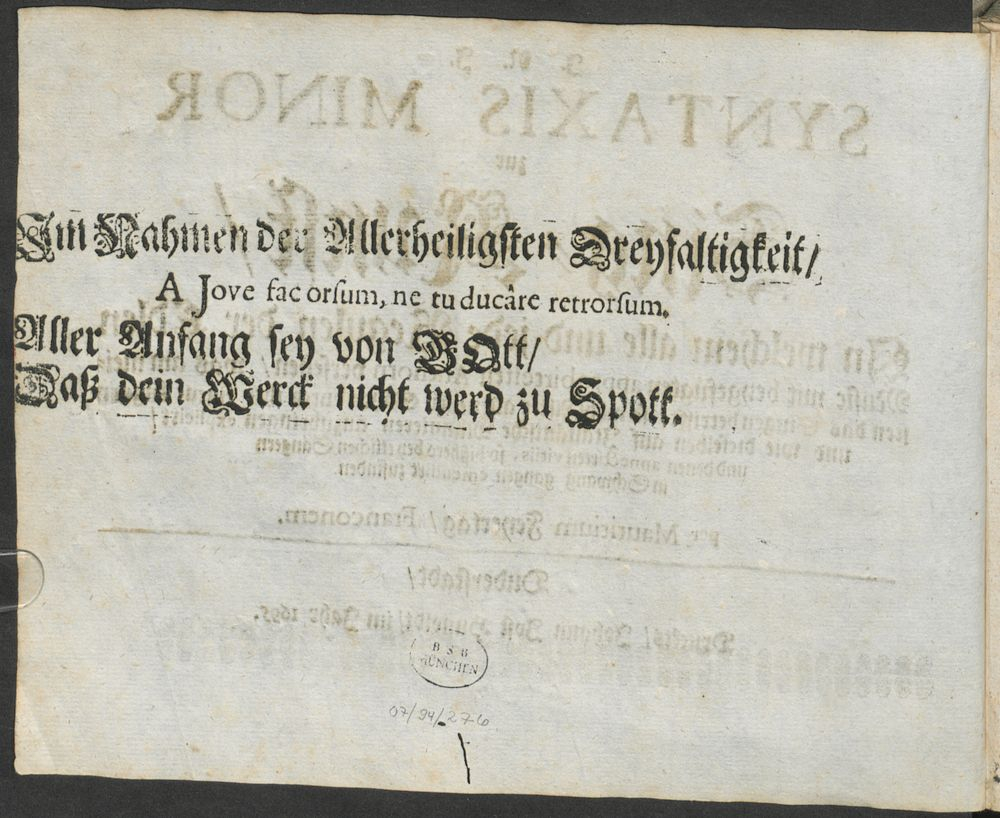 Im Nahmen der Allerheiligsten Dreyfaltigkeit/
A Jove fac orsum, ne tu ducâre retrorsum.
Aller Anfang sey von GOtt/
Daß dein Werck nicht werd zu Spott.
B S B
MÜNCHEN
07/94/276